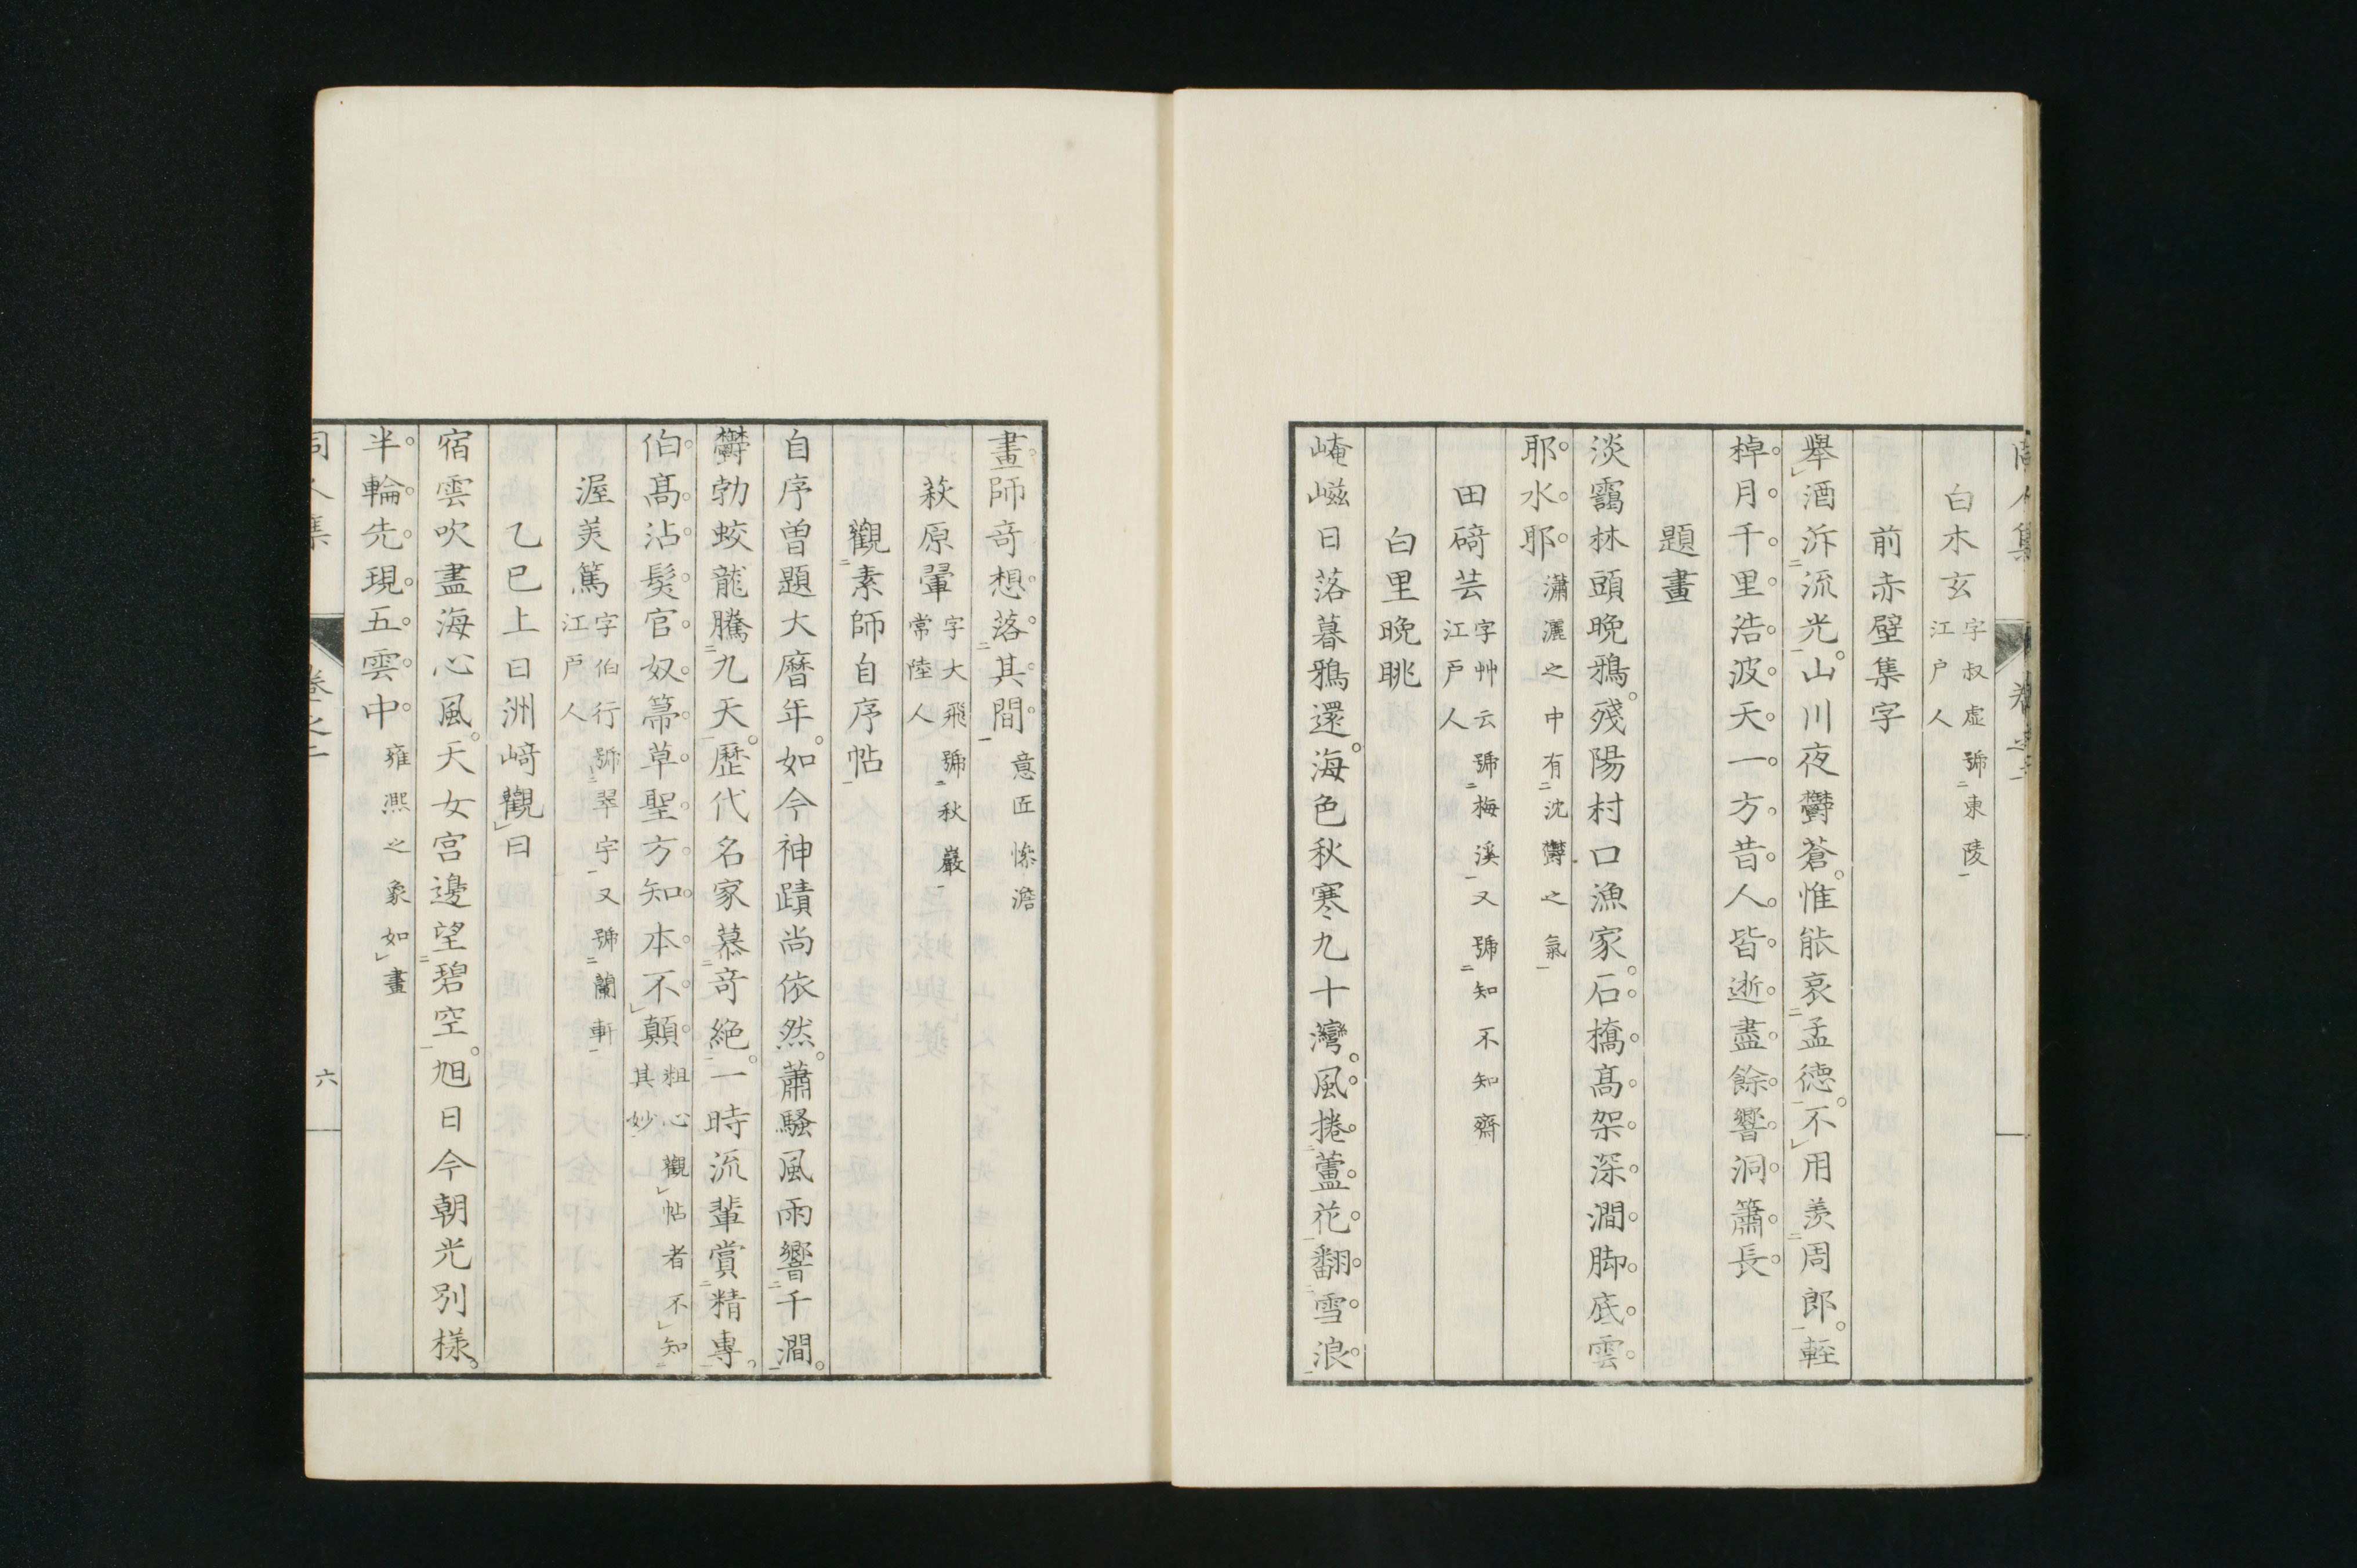 白木玄 字叔虛號東陵江户人
前赤壁集字
舉酒泝流光山川夜鬱蒼惟能哀孟德不用羨周郎輕
棹月千里浩波天一方昔人皆逝盡餘響洞簫長
題畫
淡靄林頭晩鴉殘陽村口漁家石橋髙架深澗脚底雲
耶水耶 瀟灑之中有沈鬱之氣
田碕芸 字艸云號梅溪又號知不知齋江戸人
白里晩眺
崦嵫日落暮鴉還海色秋寒九十灣風捲蘆花翻雪浪
畫師竒想落其間 意匠慘澹
萩原翬 字大飛號秋巖常陸人
觀素師自序帖
自序曾題大曆年如今神蹟尚依然蕭騷風雨響千澗
鬱勃蛟龍騰九天歷代名家慕竒絶一時流輩賞精專
伯髙沾髮官奴箒草聖方知本不顛 粗心觀帖者不知其妙
渥美篤 字伯行號翠宇又號蘭軒江戸人
乙巳上日洲﨑觀日
宿雲吹盡海心風天女宮邊望碧空旭日今朝光別樣
半輪先現五雲中 雍熙之象如畫
同人集 卷之二 六